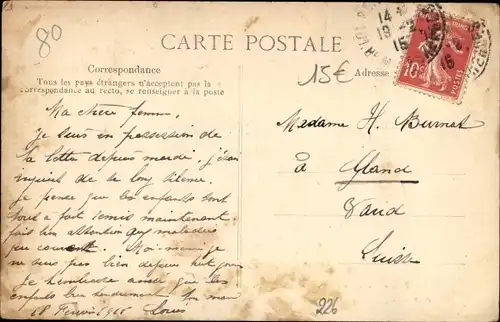 80
CARTE POSTALE
Correspondance
Tous les pays étrangers n'acceptent pas la
correspondance au recto, se renseigner à la poste
15€
Adresse
10c
POSTES
Ma chère femme.
Je suis en possession de
ta lettre depuis mardi. j'étais
inquiet de ce long silence.
je pense que les enfants sont
tout à fait remis maintenant
fais bien attention aux maladies
qui courent. Moi-même je
ne suis pas bien depuis huit jours
Je t'embrasse ainsi que les
enfants bien tendrement ton mari
18 Février 1915 Louis
Madame H. Burnat
à Gland
Vaud
Suisse
226